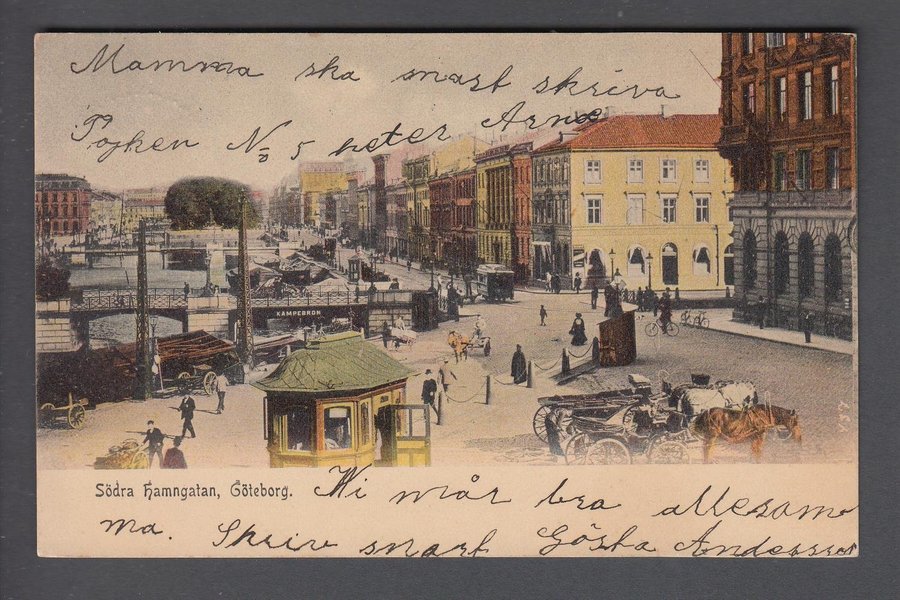 Mamma ska snart skriva
Pojken No 5 heter Arne
KÄMPEBRON
Södra Hamngatan, Göteborg.
Wi mår bra allesam-
ma. Skriv snart Gösta Andersson